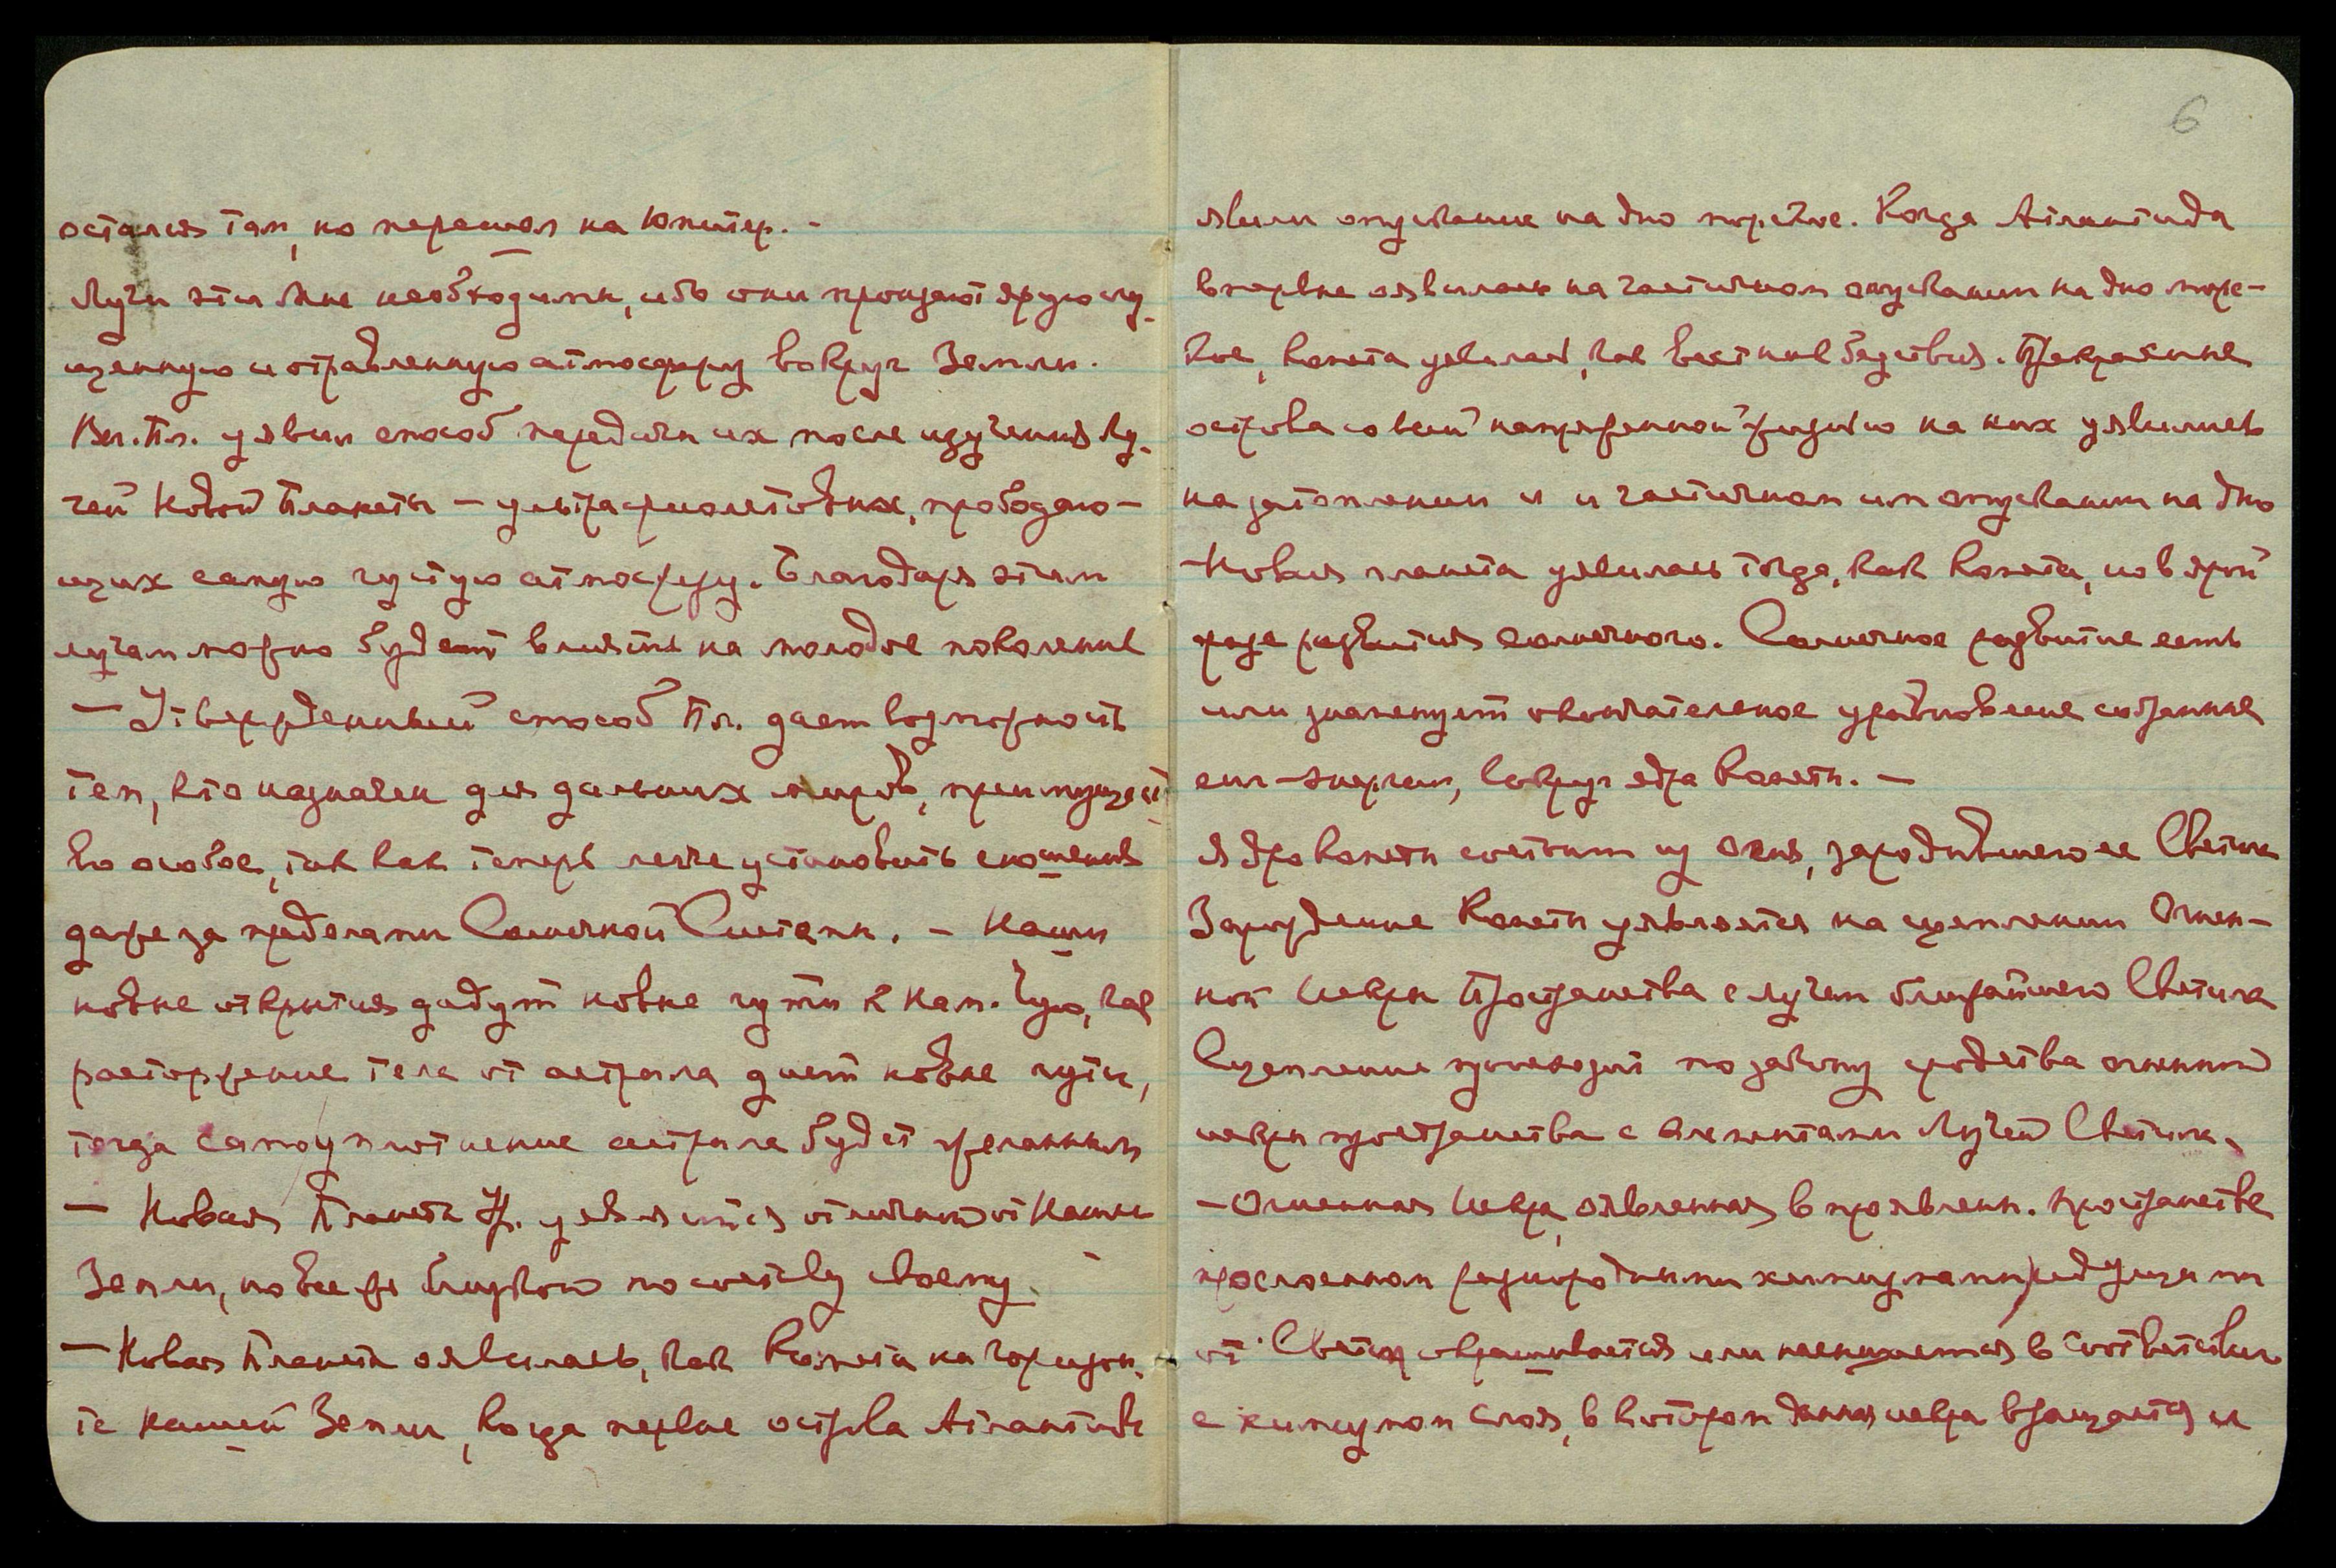 остался там, но перешел на Юпитер. –
Лучи эти Мне необходимы, ибо они пронзают ярую сгу-
щенную и отравленную атмосферу вокруг Земли.
Вл. Пл. уявил способ передачи их после изучения Лу-
чей Новой Планеты – ультрафиолетовых, прободаю-
щих самую густую атмосферу. Благодаря этим
лучам можно будет влиять на молодое поколение
– Утвержденный способ Пл. дает возможность
тем, кто назначен для дальних миров, преимущест
во особое, так как теперь легче установить сношения
даже за пределами Солнечной Системы. – Наши
новые открытия дадут новые пути к Нам. Чую, как
расторжение тела от астрала дает новые пути,
тогда самоуплотнение астрала будет желанным
– Новая Планета Ур. уявляется отличной от Нашей
Земли, но все же близкой по составу своему.
– Новая Планета оявилась, как Комета на горизон-
те Нашей Земли, когда первые острова Атлантиды
6
явили опускание на дно морское. Когда Атлантида
впервые оявилась на частичном опускании на дно морс-
кое, комета уявилась, как вестник бедствия. Прекрасные
острова со всей напряженной жизнью на них уявились
на затоплении и и частичном им опускании на дно
– Новая планета уявилась тогда, как Комета, но в ярой
фазе развития солнечного. Солнечное развитие есть
или знаменует окончательное уравновешие собранных
сил-энергии, вокруг ядра Кометы. –
Ядро Кометы состоит из Огня, зародившего ее Светила
Зарождение Кометы уявляется на сцеплении Огнен-
ной Искры Пространства с лучем ближайшего Светила
Сцепление происходит по закону сродства огненной
искры пространства с элементами Лучей Светила.
– Огненная Искра, оявленная в проявлен. пространстве
прослоенном разнородными химизмами, идущими
от Светил окрашивается или насыщается в соответствии
с химизмом слоя, в котором данная искра вращается и